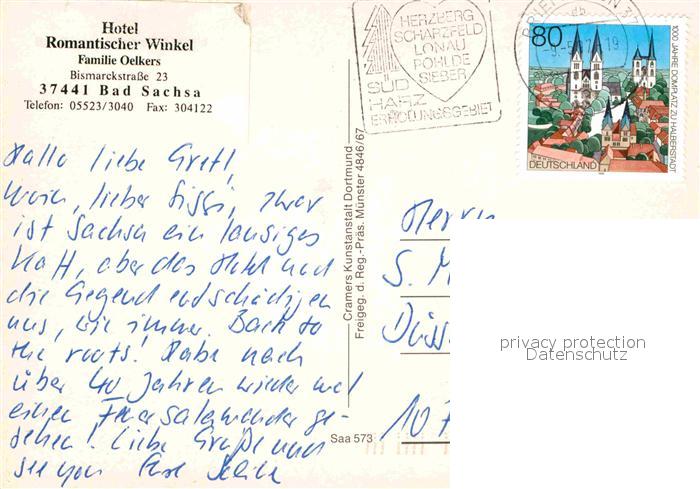 Hotel
Romantischer Winkel
Familie Oelkers
Bismarckstraße 23
37441 Bad Sachsa
Telefon: 05523/3040 Fax: 304122
HERZBERG
SCHARZFELD
LONAU
PÖHLDE
SIEBER
SÜD
HARZ
ERHOLUNGSGEBIET
80
DEUTSCHLAND
1000 JAHRE DOMPLATZ ZU HALBERSTADT
Hallo liebe Gretl,
lieber Siggi, zwar
ist Sachsa ein lausiges
Kaff, aber das Hotel und
die Gegend entschädigen
uns, wie immer. Back to
the roots! Habe nach
über 40 Jahren wieder mal
einen Feuersalamander ge-
sehen! Liebe Grüße und
see you
Cramers Kunstanstalt Dortmund
Freigeg. d. Reg.-Präs. Münster 4846/67
Saa 573
Herrn
S. M
Düss
privacy protection
Datenschutz